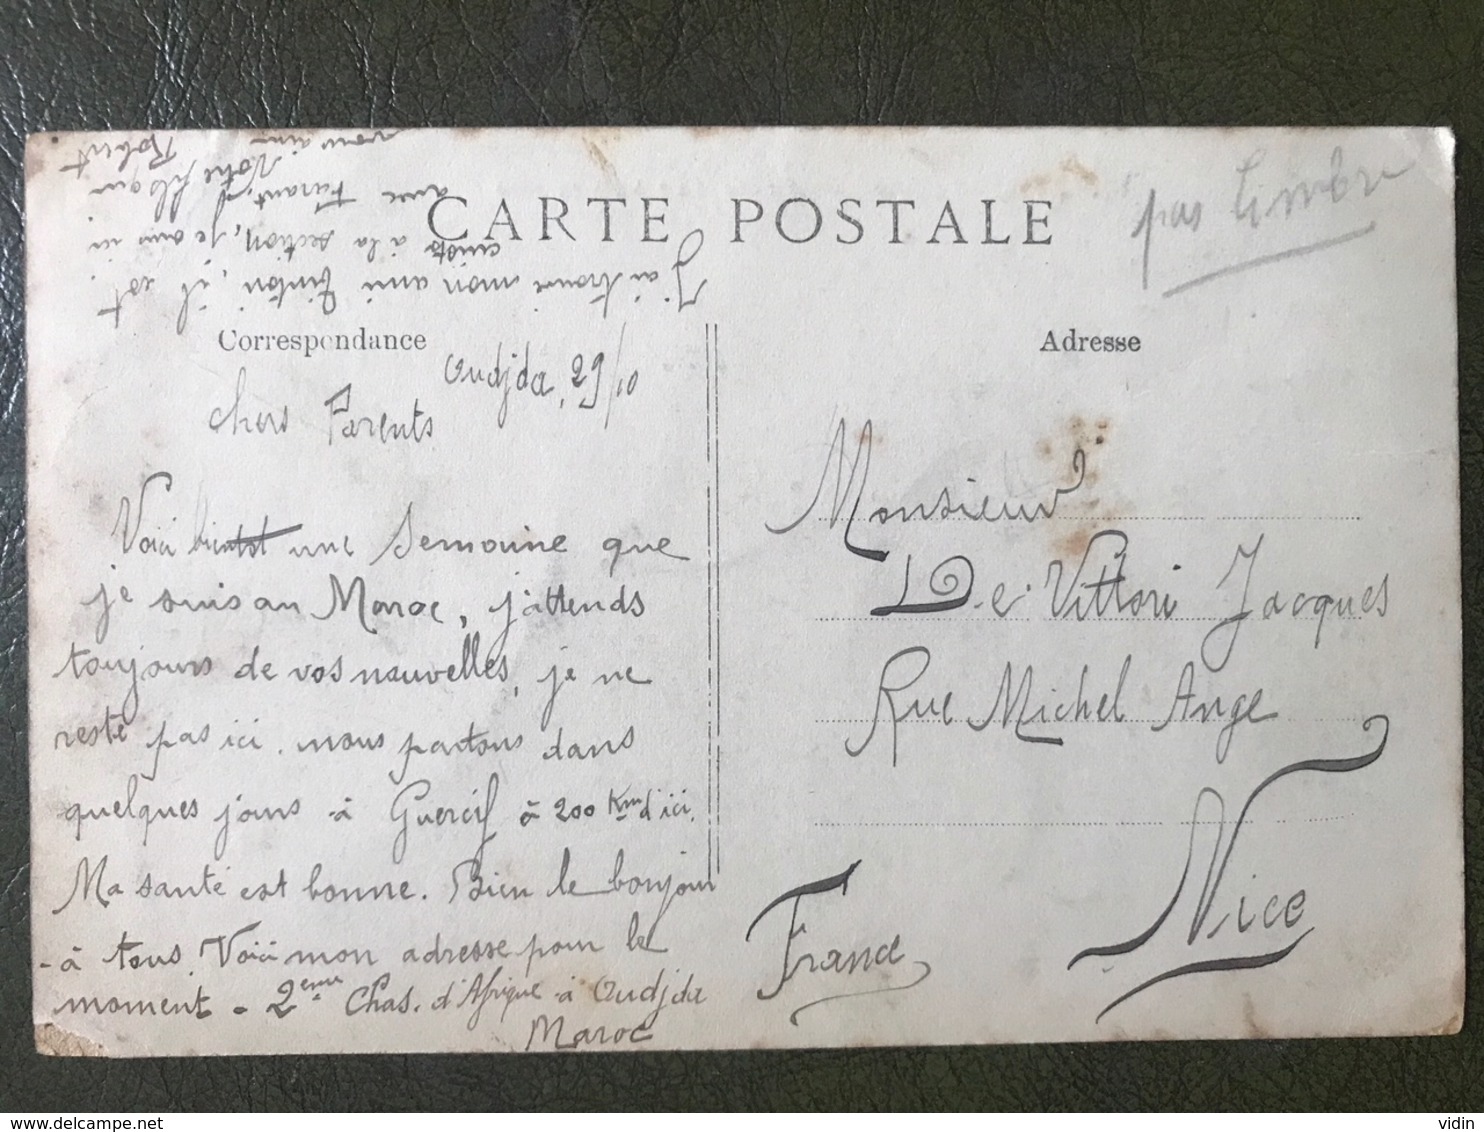 CARTE POSTALE
pas timbre
Correspondance
Adresse
Oudjda, 29/10
Chers Parents
Voici bientot une Semaine que
je suis au Maroc, j'attends
toujours de vos nouvelles, je ne
reste pas ici. nous partons dans
quelques jours à Guercif à 200 Km d'ici.
Ma santé est bonne. Bien le bonjour
à tous. Voici mon adresse pour le
moment - 2eme Chas. d'Afrique à Oudjda
Maroc
J'ai trouvé mon ami Tintin, il est
à la section, je suis ici
avec
Votre fils qui
vous aime
Robert
Monsieur
De Vittori Jacques
Rue Michel Ange
Nice
France
vidin